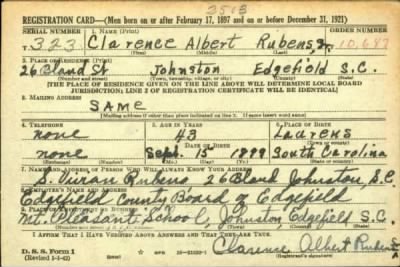 3513
REGISTRATION CARD—(Men born on or after February 17, 1897 and on or before December 31, 1921)
SERIAL NUMBER 1. NAME (Print) ORDER NUMBER
T 323 Clarence Albert Rubens, Jr. 10,687
(First) (Middle) (Last)
3. PLACE OF RESIDENCE (Print)
26 Bland St Johnston Edgefield S.C.
(Number and street) (Town, township, village, or city) (County) (State)
[THE PLACE OF RESIDENCE GIVEN ON THE LINE ABOVE WILL DETERMINE LOCAL BOARD
JURISDICTION; LINE 2 OF REGISTRATION CERTIFICATE WILL BE IDENTICAL]
3. MAILING ADDRESS
SAME
[Mailing address if other than place indicated on line 2. If same insert word same]
4. TELEPHONE 5. AGE IN YEARS 6. PLACE OF BIRTH
none 43 Laurens
DATE OF BIRTH (Town or county)
none Sept. 15 1899 South Carolina
(Exchange) (Number) (Mo.) (Day) (Yr.) (State or country)
7. NAME AND ADDRESS OF PERSON WHO WILL ALWAYS KNOW YOUR ADDRESS
Vivian Rubens 26 Bland Johnston S.C.
8. EMPLOYER'S NAME AND ADDRESS
Edgefield County Board of Edgefield
9. PLACE OF EMPLOYMENT OR BUSINESS
Mt. Pleasant School, Johnston Edgefield S.C.
(Number and street or R. F. D. number) (Town) (County) (State)
I AFFIRM THAT I HAVE VERIFIED ABOVE ANSWERS AND THAT THEY ARE TRUE.
D. S. S. Form 1
(Revised 1-1-42) (over) Clarence Albert Rubens
(Registrant's signature)